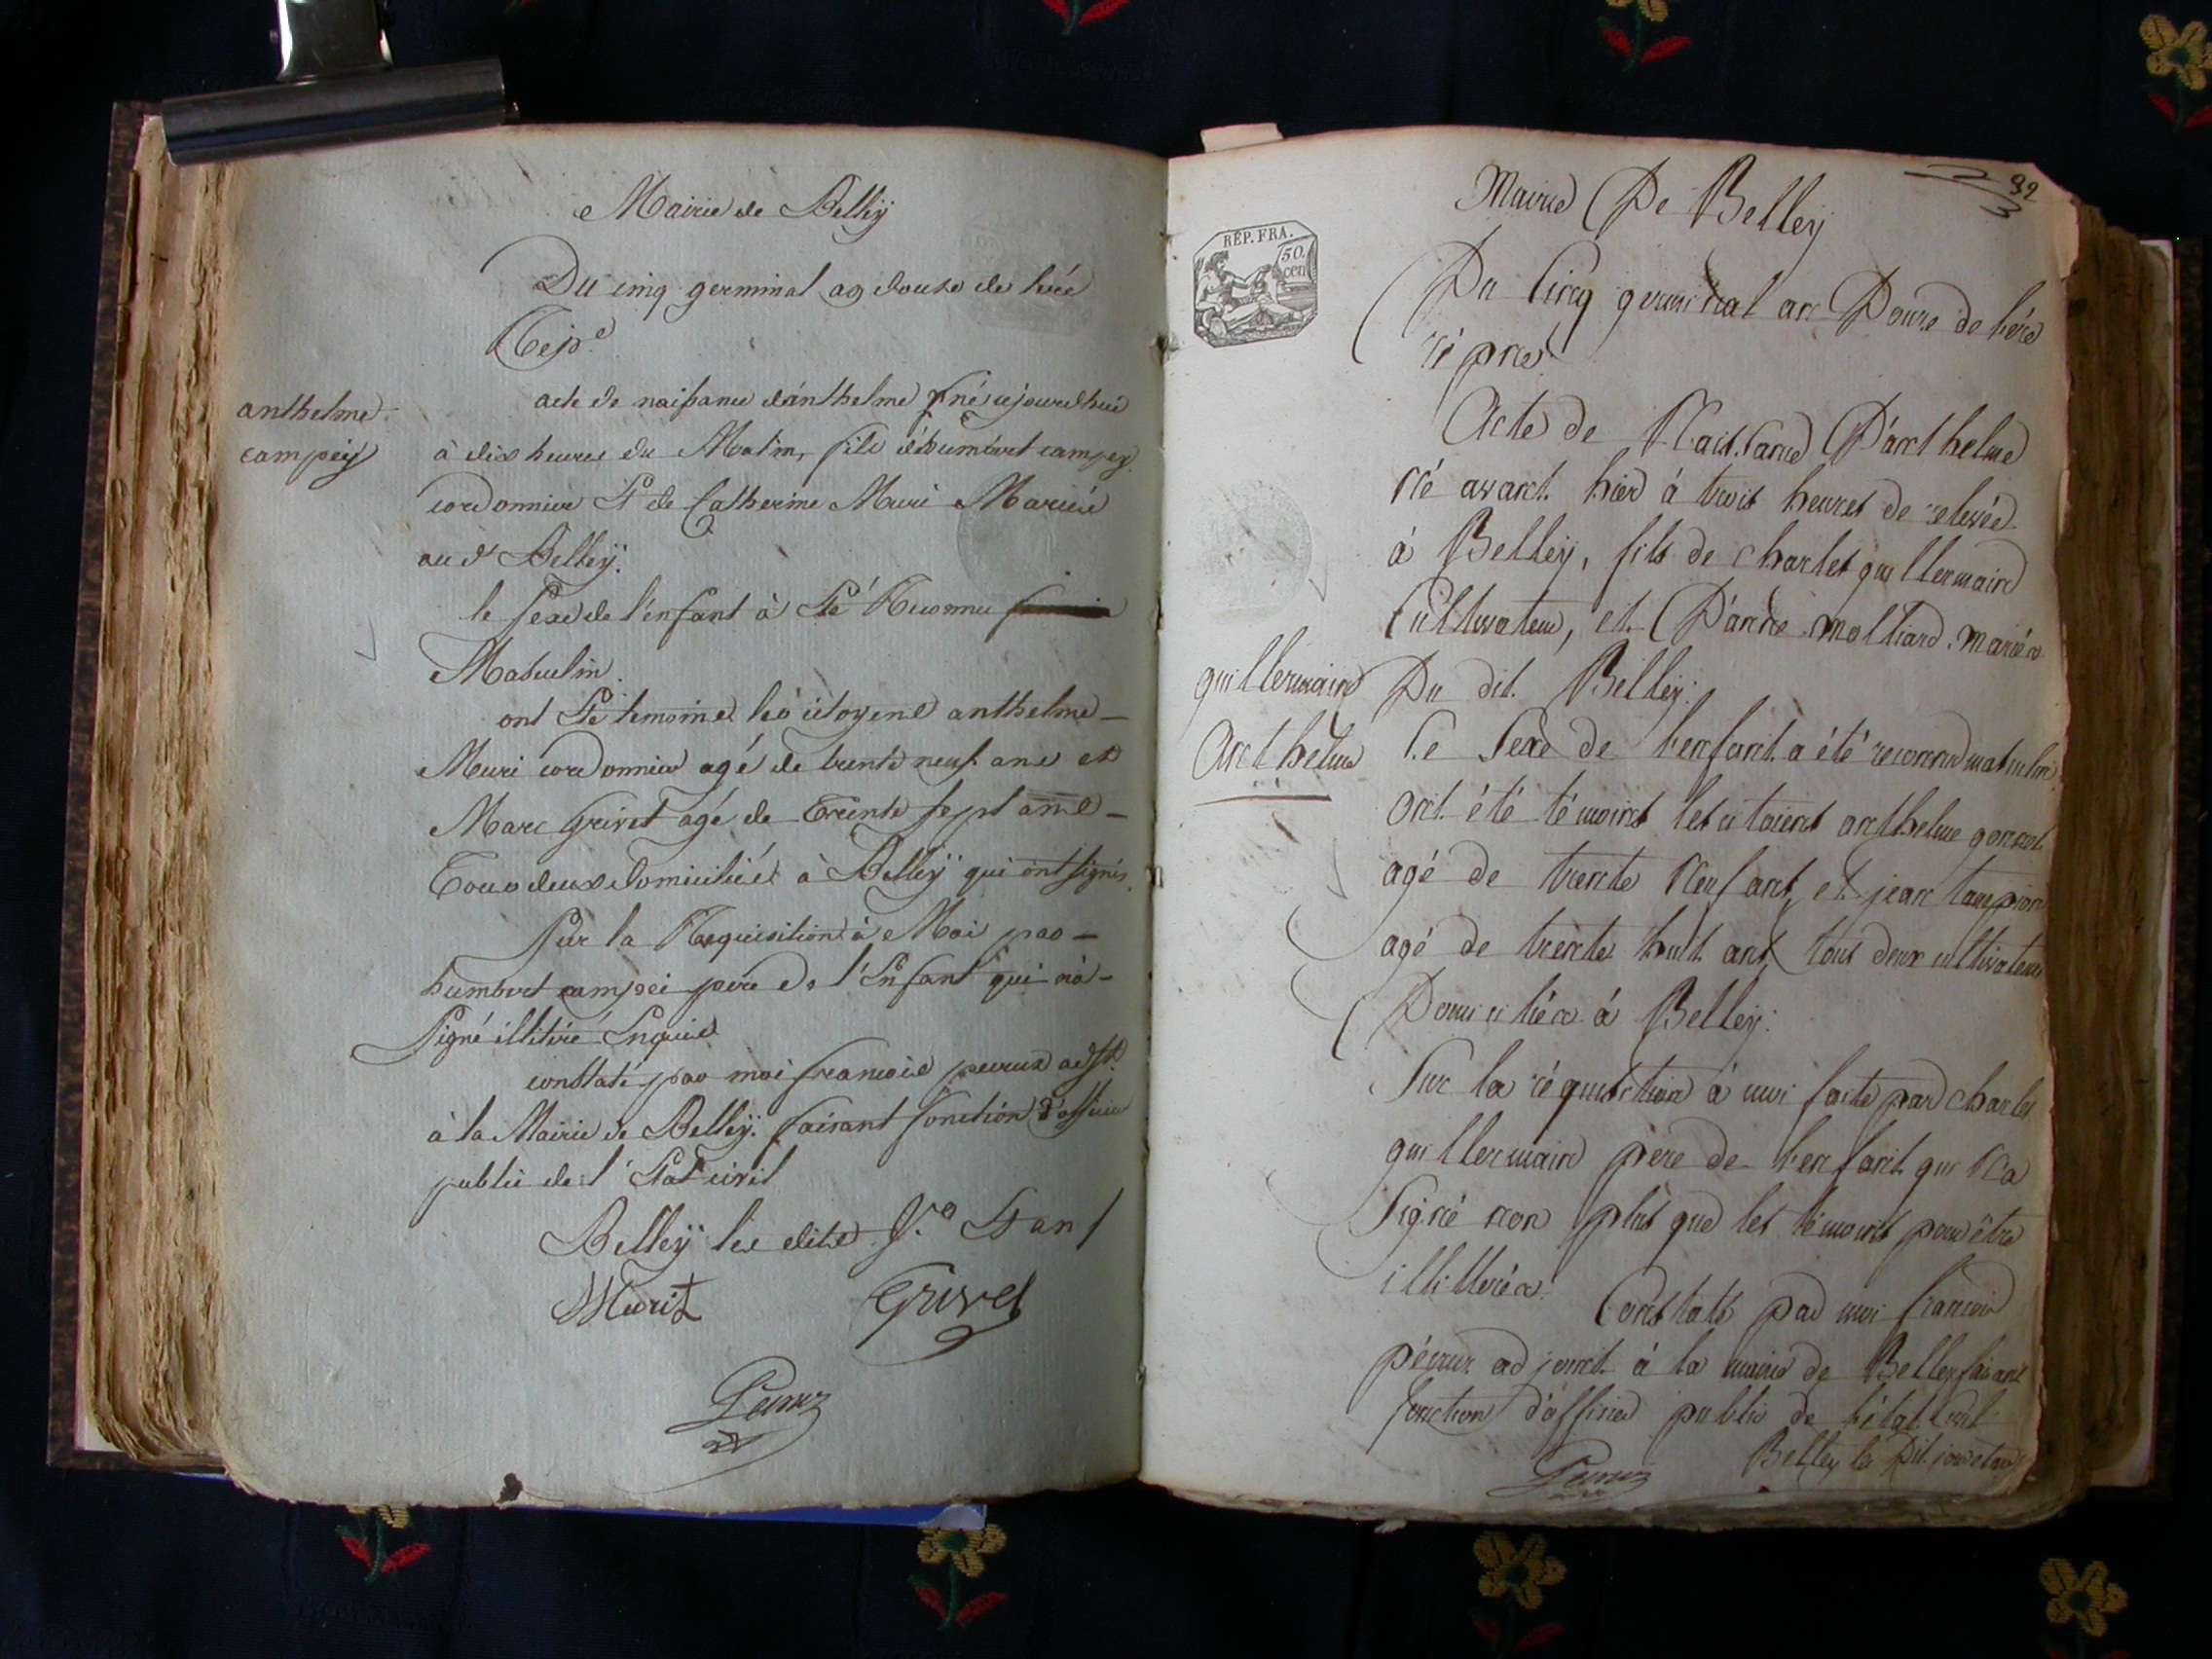 Mairie de Belley
Du cinq germinal an douze de l'ére
Rep.e
anthelme
campey
acte de naissance d'anthelme né cejourdhui
à dix heures du Matin, fils d'humbert campey
cordonnier Et de Catherine Muri Mariés
au d. Belley.
le sexe de l'enfant à Eté Reconnu
Masculin.
ont Eté temoins les citoyens anthelme
Muri cordonnier agé de trente neuf ans et
Marc Grivet agé de trente sept ans
Tous deux domiciliés à Belley qui ont signés
Sur la Requisition à Moi par
humbert campei pere de l'Enfant qui n'à
Signé illitéré Enquis
constaté par moi francois peuruz adjt.
à la Mairie de Belley. faisant fonction d'officier
public de l'Etat civil
Belley les dits Jr. Et an
Muri Grivet
Peuruz
92
Mairie De Belley
REP. FRA.
50.
cen
Du Cinq germinal an Douze de l'ére
répne.
Acte de Naissance D'anthelme
Né avant hier à trois heures de relevée
à Belley, fils de charles guillermain
Cultivateur, et D'anne molliard mariés
guillermain
Anthelme
Du dit Belley.
Le Sexe de l'enfant a été reconnu masculin
ont été témoins les citoiens anthelme gonnet
agé de trente Neuf ans, et jean tampion
agé de trente huit ans, tous deux cultivateurs
Domiciliés à Belley.
Sur la réquisition à moi faite par charles
guillermain pere de l'enfant qui N'a
Signé non plus que les témoins pour être
illittérés. Constaté par moi francois
péuruz adjoint à la mairie de Belley faisant
fonction d'officier public de l'état civil
Belley les Dit jour et an
Peuruz